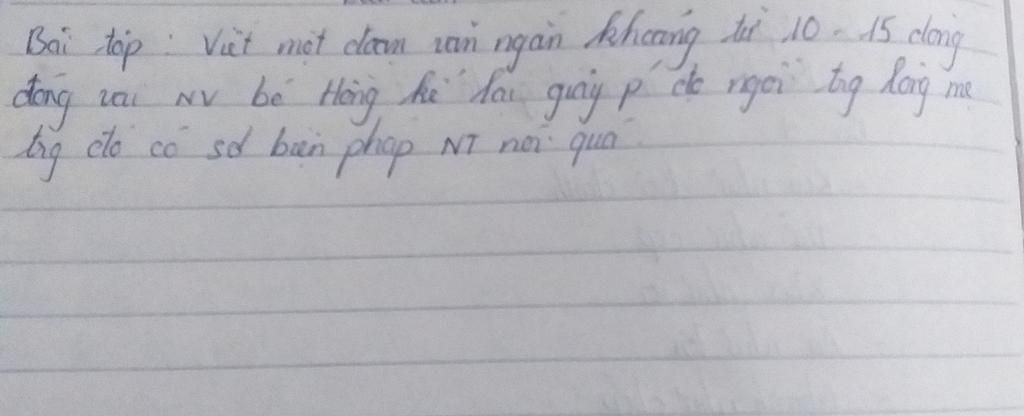 Bài tập : Viết một đoạn văn ngắn khoảng từ 10 - 15 dòng
đóng vai NV bé Hồng kể lại giây p' đc ngồi trg lòng mẹ
trg đó có sd biện pháp NT nói quá